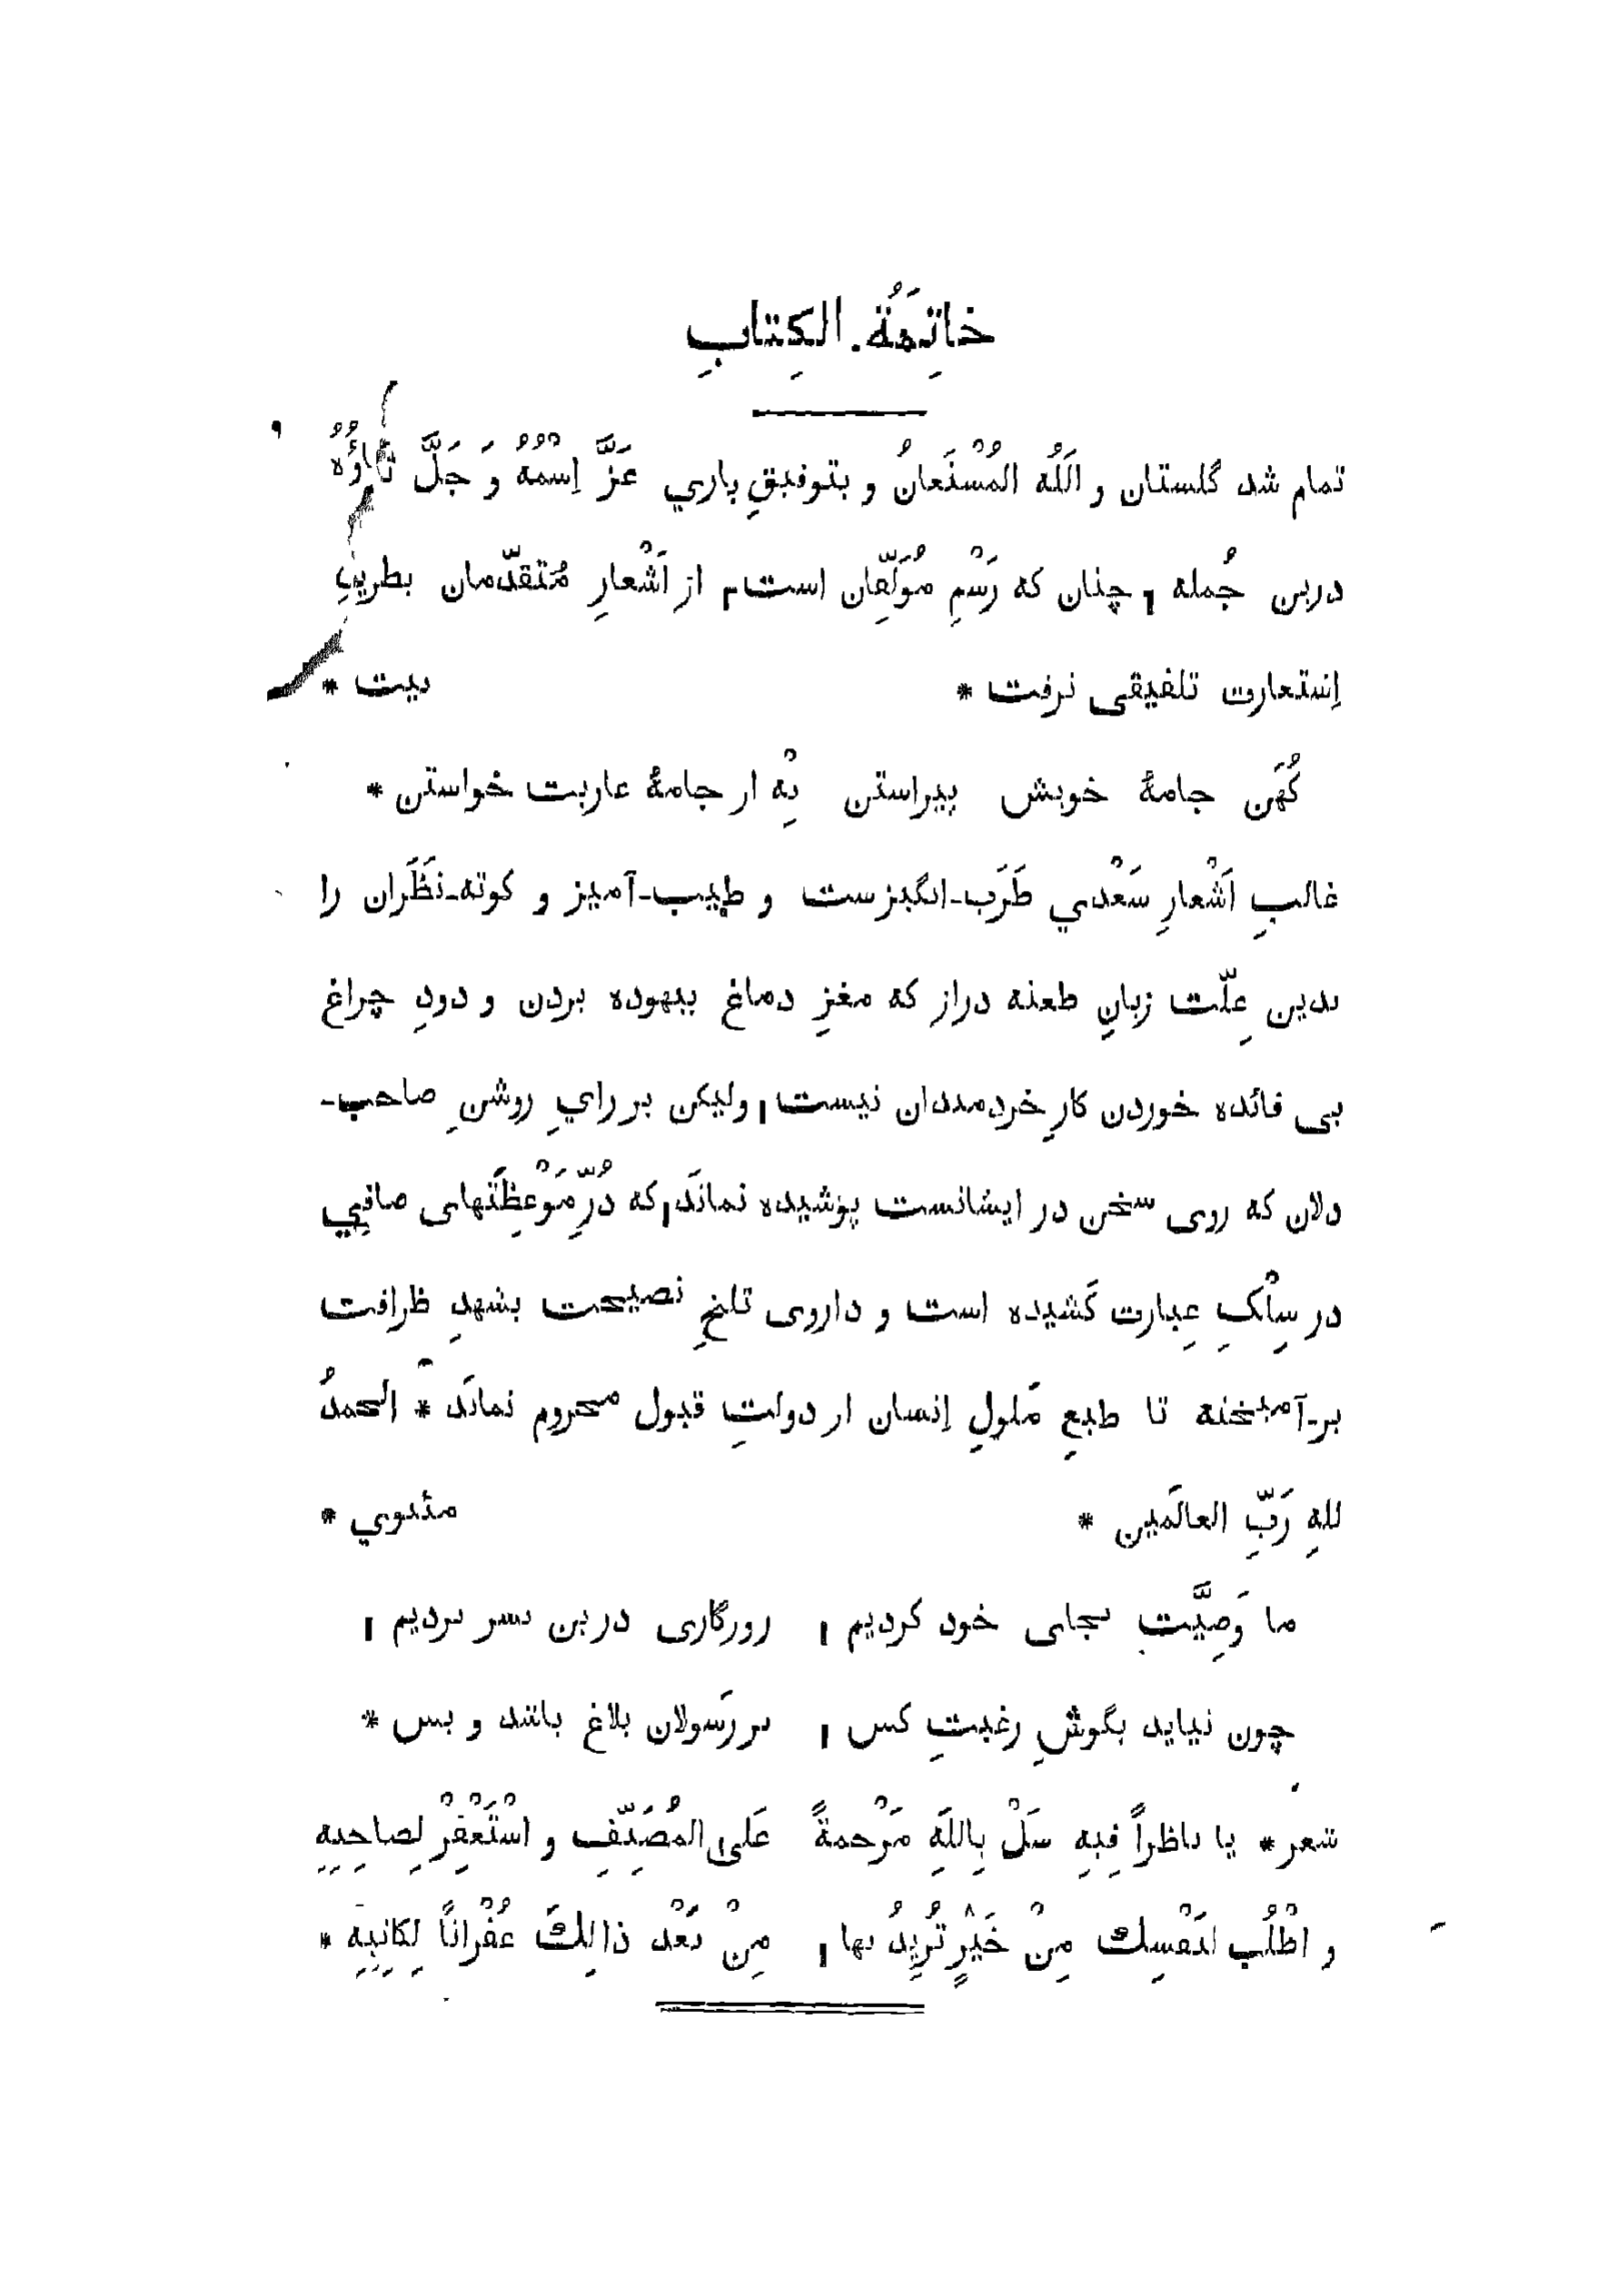 خاتِمَةُ الکِتابِ
تمام شد گلستان و اَللّٰه المُسْتَعانُ و بتوفیقِ باري عَزَّ اِسْمُهُ وَ جَلَّ ثَناؤُهُ
درین جُمله , چنان که رَسْمِ مُوَلِّفان است, از اَشْعارِ مُتَقدِّمان بطریقِ
اِستعارت تلفیقی نرفت * بیت *
کُهَن جامهٔ خویش پیراستن بِهْ از جامهٔ عاریت خواستن *
غالبِ اَشْعارِ سَعْدي طَرَب-انگیزست و طیب-آمیز و کوته-نَظَران را
بدین عِلّت زبانِ طعنه دراز که مغزِ دماغ بیهوده بردن و دودِ چراغ
بی فائده خوردن کارِ خردمندان نیست, ولیکن بر رايِ روشنِ صاحب-
دلان که روی سخن در ایشانست پوشیده نمانَد, که دُرِّ مَوْعِظَتهای صافِي
در سِلْکِ عِبارت کَشیده است و داروی تلخِ نصیحت بشهدِ ظرافت
بر-آمیخته تا طبعِ مَلولِ اِنسان از دولتِ قبول محروم نمانَد * الحمدُ
للهِ رَبِّ العالَمین * مثنوي *
ما وَصِیَّت بجای خود کردیم , روزگاری درین بسر بردیم ,
چون نیاید بگوشِ رغبتِ کس , بر رَسولان بلاغ باشد و بس *
شعر * یا ناظراً فِیهِ سَلْ بِاللّٰهِ مَرْحمةً عَلَی المُصَنِّفِ و اسْتَغْفِرْ لِصاحِبِهِ
و اطْلُب لنَفْسِك مِنْ خَیْرٍ تُرِیدُ بها , مِنْ بَعْد ذالِكَ غُفْراناً لِکاتِبِهِ *